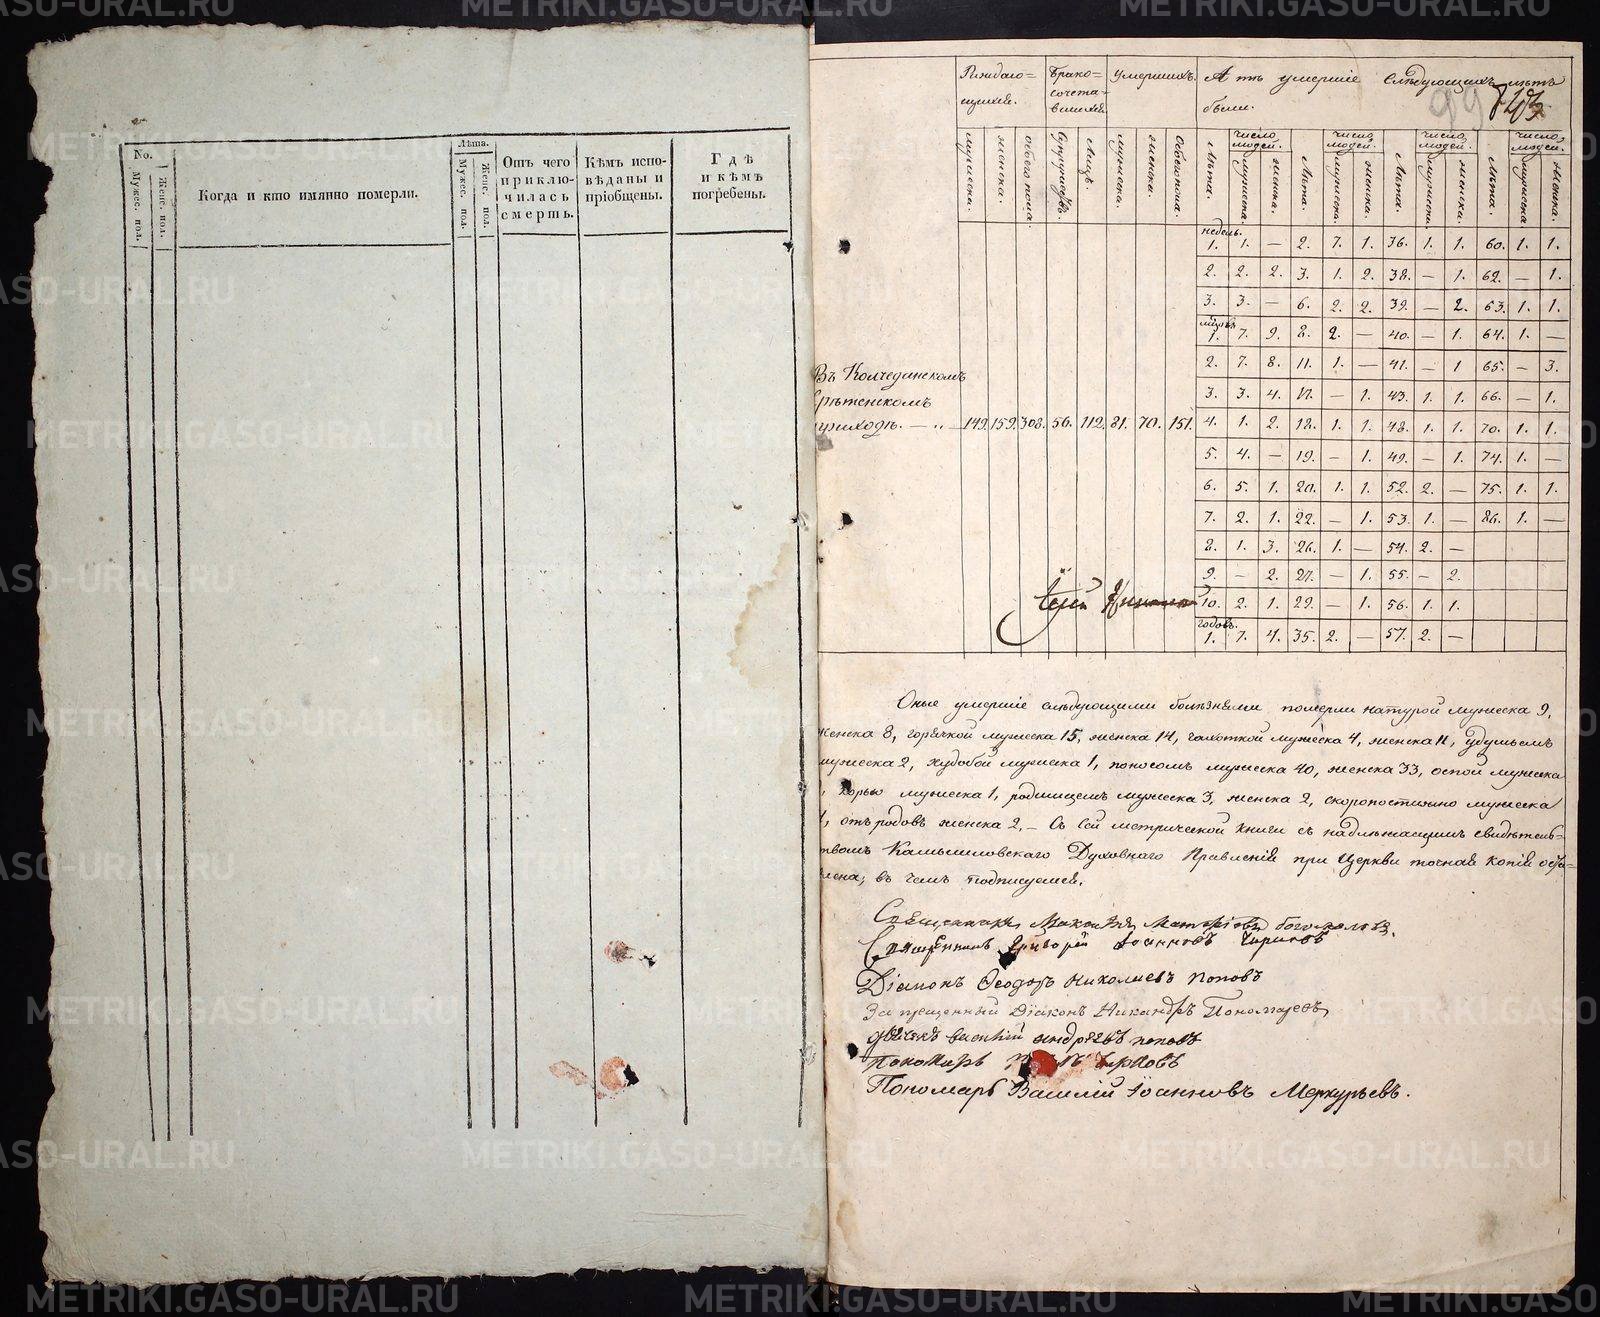 No.
Мужес. пол.
Женс. пол.
Когда и кто имянно померли.
Лѣта.
Мужес. пол.
Женс. пол.
Отъ чего
приклю-
чилась
смерть.
Кѣмъ испо-
вѣданы и
пріобщены.
Гдѣ
и кѣмъ
погребены.
Раждаю=
щихся.
Брако=
сочета-
вшихся
умершихъ.
А тѣ умершіе слѣдующихъ лѣтъ
были.
99
мужеска.
женска.
обоего пола.
Супружествъ.
Лицъ.
мужеска.
женска.
обоего пола.
Лѣта.
число людей.
мужеска.
женска.
Лѣта.
число людей.
мужеска.
женска.
Лѣта.
число людей.
мужеска.
женска.
Лѣта.
число людей.
мужеска.
женска.
недель.
1. 1. — 2. 7. 1. 36. 1. 1. 60. 1. 1.
2. 2. 2. 3. 1. 2. 38. — 1. 62. — 1.
3. 3. — 6. 2. 2. 39. — 2. 63. 1. 1.
1. 7. 9. 8. 2. — 40. — 1. 64. 1. —
2. 7. 8. 11. 1. — 41. — 1 65. — 3.
3. 3. 4. 17. — 1. 43. 1. 1. 66. — 1.
Въ Колчеданскомъ
Срѣтенскомъ
приходѣ. — „ — 149. 159. 308. 56. 112. 81. 70. 151. 4. 1. 2. 18. 1. 1. 48. 1. 1. 70. 1. 1.
5. 4. — 19. — 1. 49. — 1. 74. 1. —
6. 5. 1. 20. 1. 1. 52. 2. — 75. 1. 1.
7. 2. 1. 22. — 1. 53. 1. — 86. 1. —
8. 1. 3. 26. 1. — 54. 2. —
9. — 2. 27. — 1. 55. — 2.
10. 2. 1. 29. — 1. 56. 1. 1.
годовъ.
1. 7. 4. 35. 2. — 57. 2. —
Оные умершіе слѣдующими болѣзнями померли натурой мужеска 9,
женска 8, горячкой мужеска 15, женска 14, чахоткой мужеска 4, женска 11, удушьемъ
мужеска 2, худобой мужеска 1, поносомъ мужеска 40, женска 33, оспой мужеска
корью мужеска 1, родимцемъ мужеска 3, женска 2, скоропостижно мужеска
1, отъ родовъ женска 2, — Съ сей метрической книги съ надлежащимъ свидѣтель-
твомъ Камышловскаго Духовнаго Правленія при Церкви точная копія оста-
лена; въ чемъ подписуемся.
Священникъ Матѳіевъ богомоловъ.
Священникъ Григорій Іоанновъ Чирковъ
Діаконъ Ѳеодоръ Николаевъ Поповъ
Запрещенный Діаконъ Никандръ Пономаревъ
дьячекъ василій андреевъ поповъ
Пономарь
Пономарь Василій Іоанновъ Меркурьевъ.
METRIKI.GASO-URAL.RU